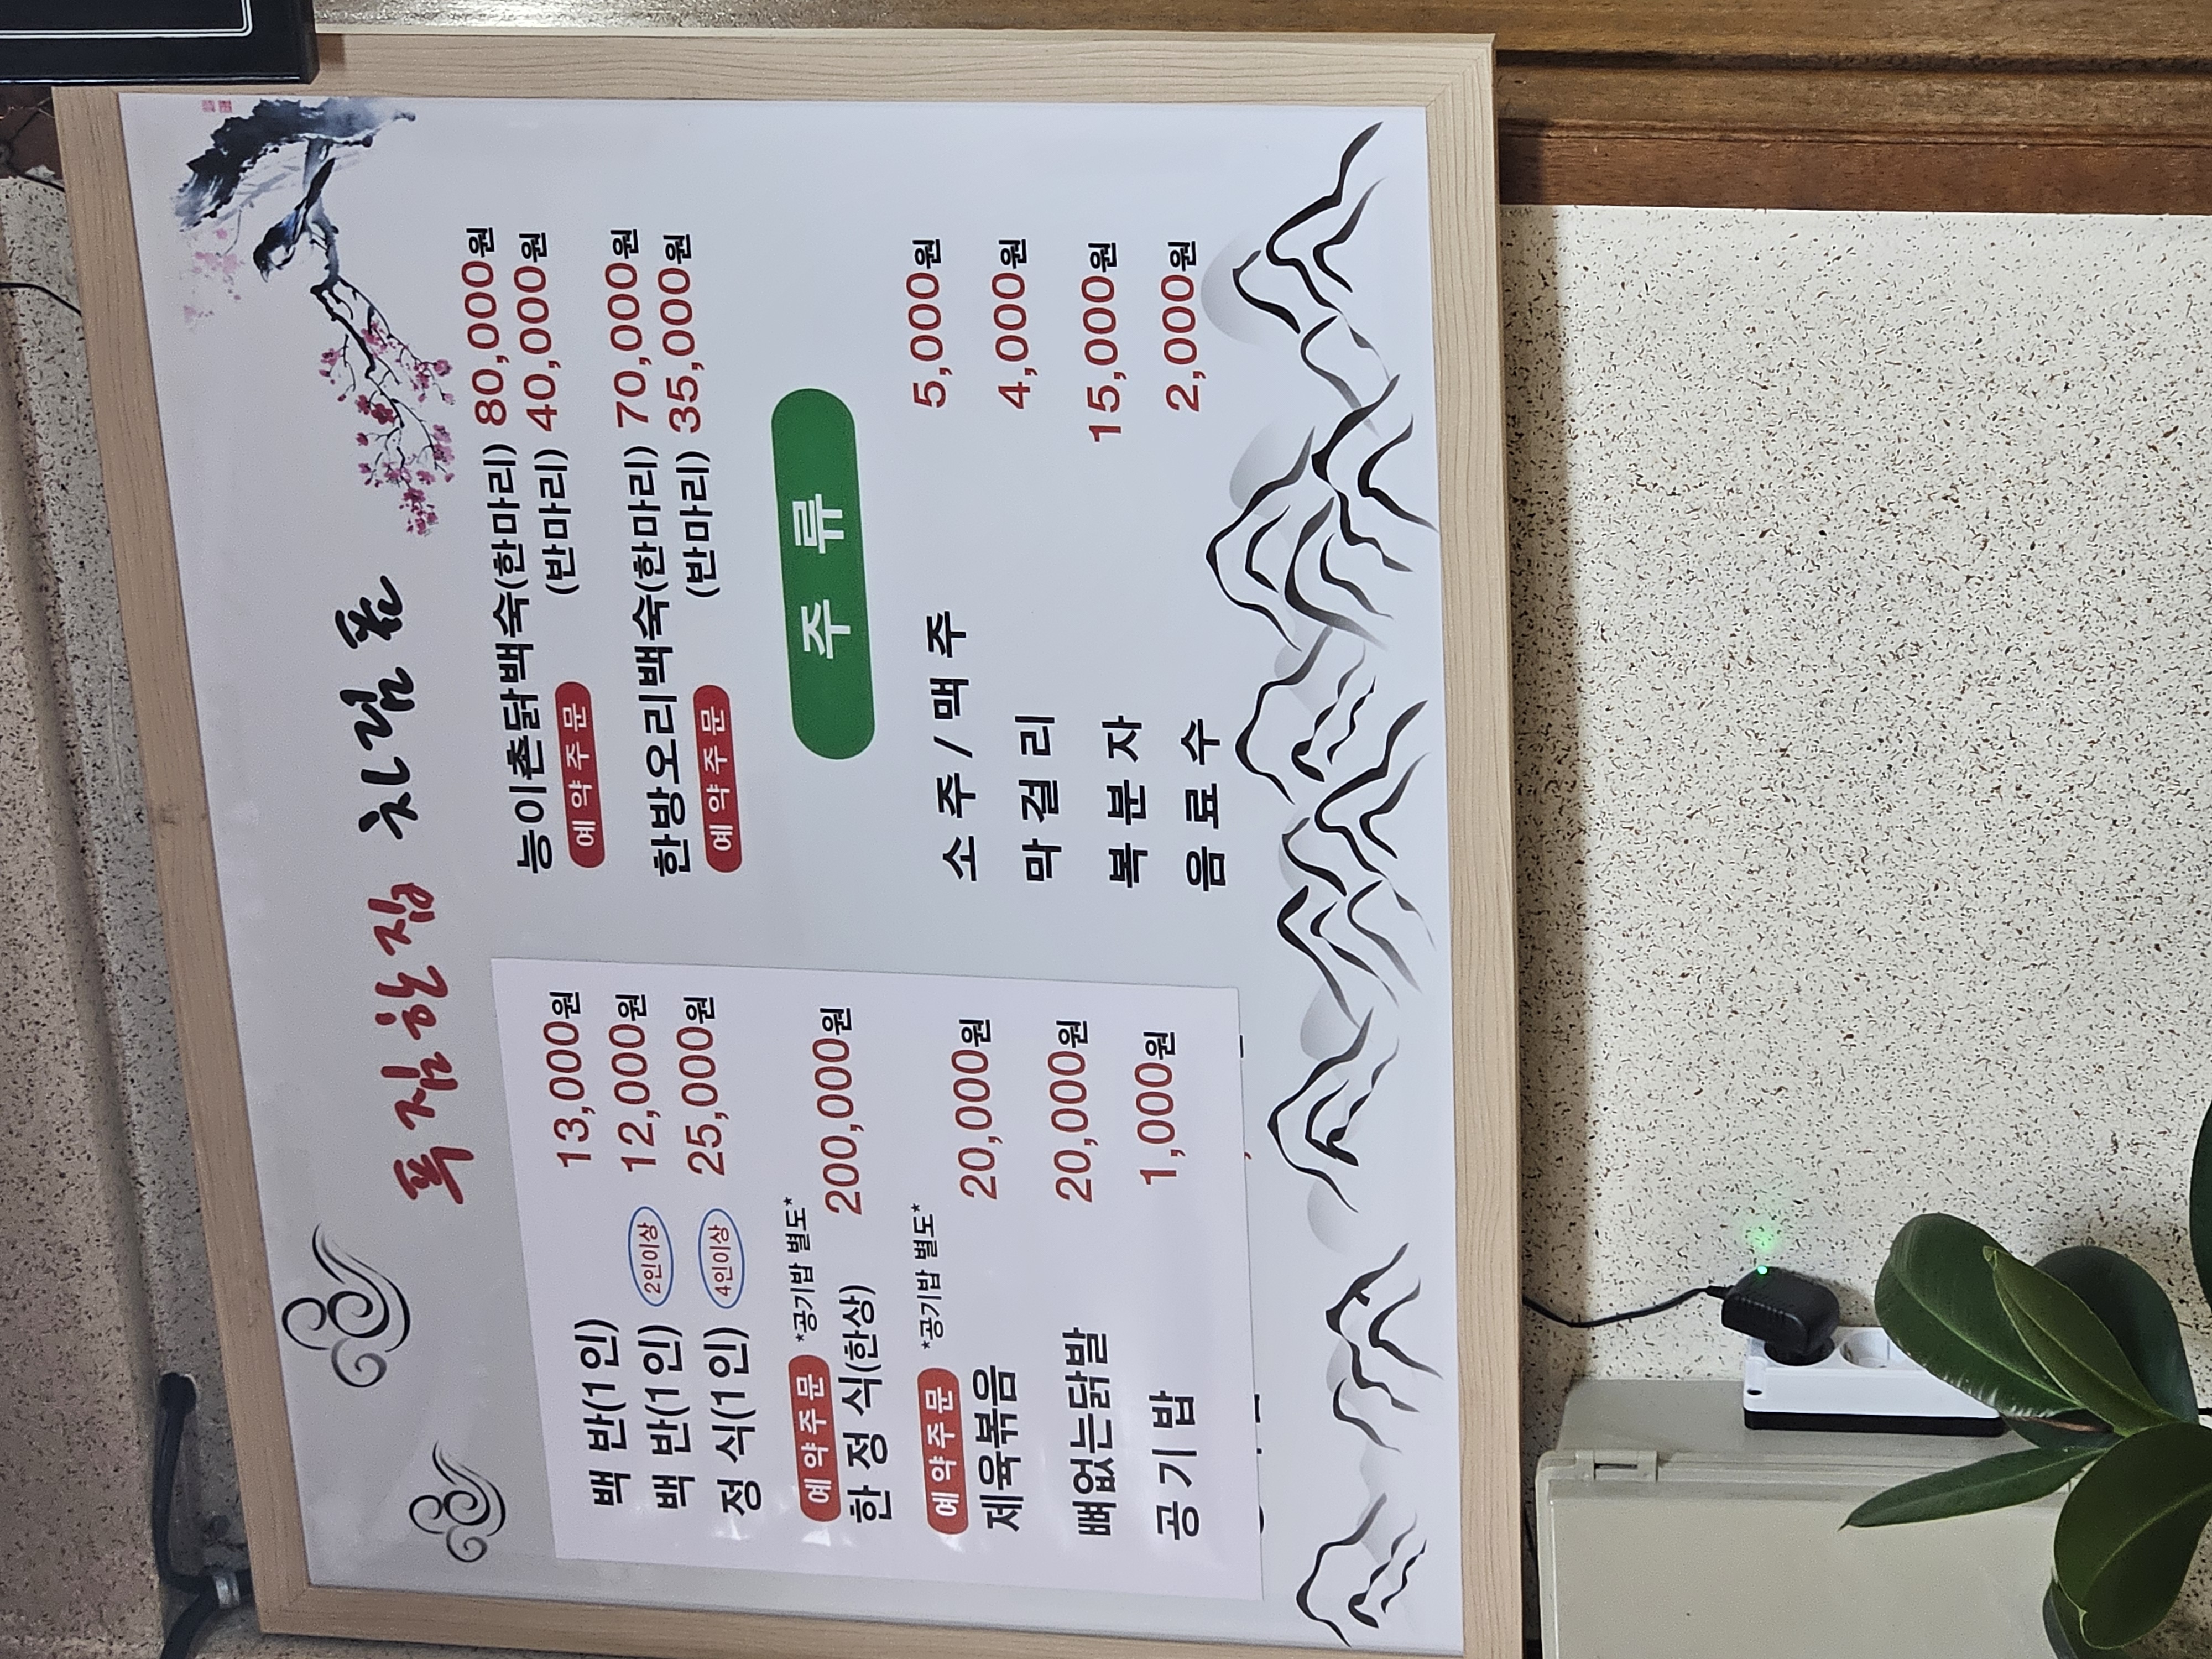 푹잠한집 차림표
백 반(1인) 13,000원
백 반(1인) 2인이상 12,000원
정 식(1인) 4인이상 25,000원
예약주문 *공기밥 별도*
한 정 식(한상) 200,000원
예약주문 *공기밥 별도*
제육볶음 20,000원
뼈없는닭발 20,000원
공 기 밥 1,000원
능이촌닭백숙(한마리) 80,000원
예약주문 (반마리) 40,000원
한방오리백숙(한마리) 70,000원
예약주문 (반마리) 35,000원
주 류
소 주 / 맥 주 5,000원
막 걸 리 4,000원
복 분 자 15,000원
음 료 수 2,000원